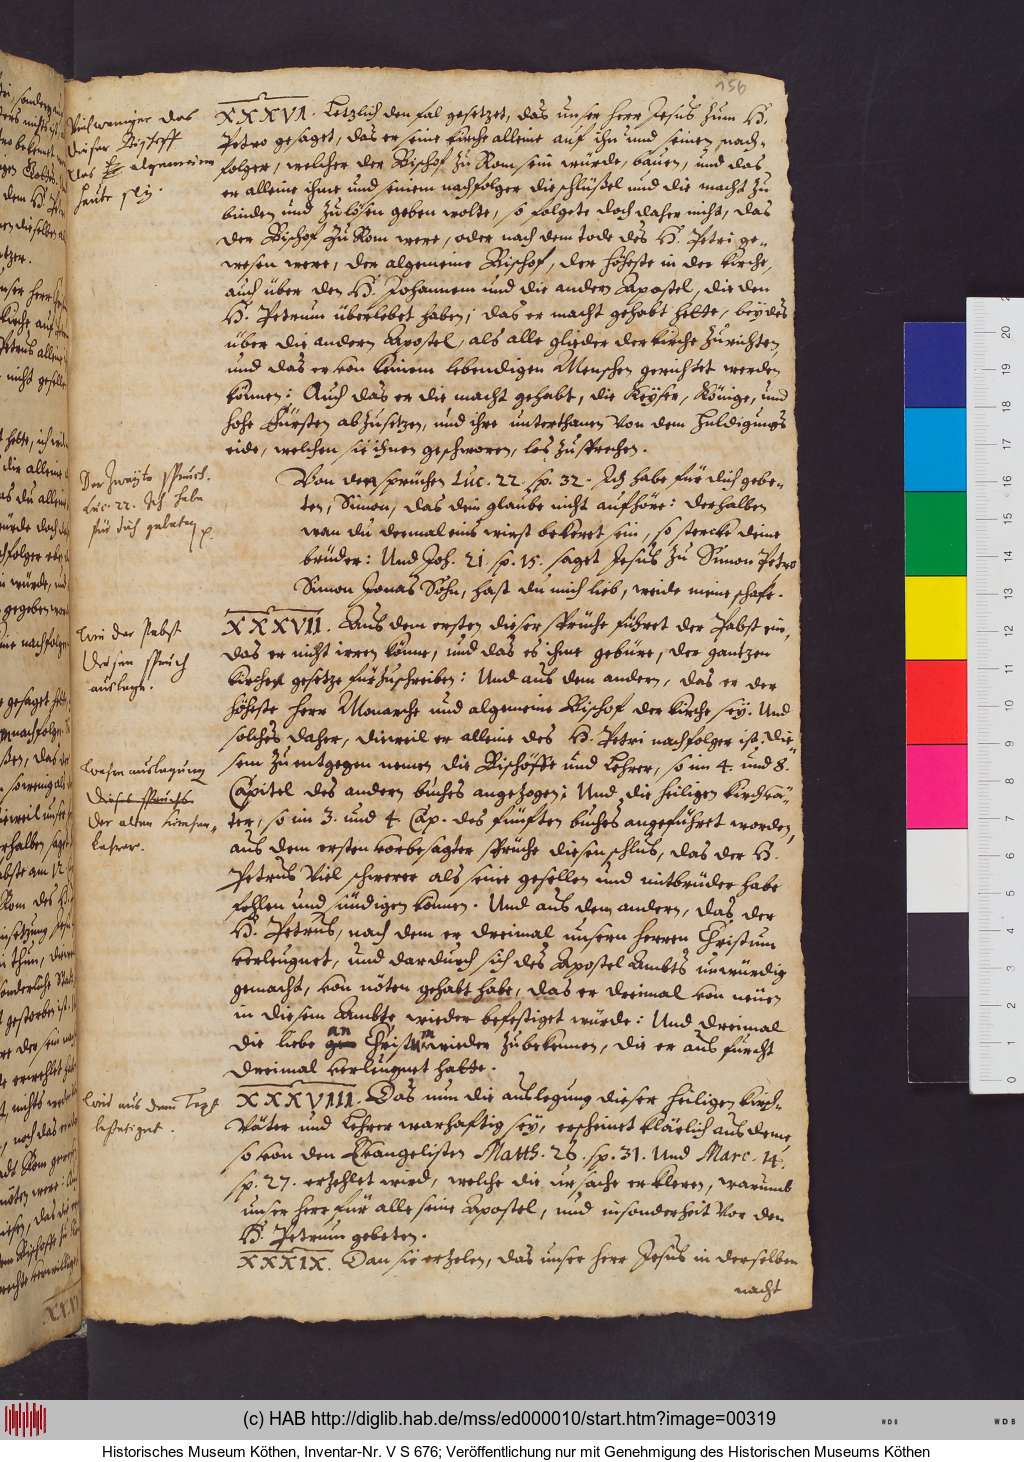 156
XXXVI. Letzlich den fal gesetzet, das unser herr Jesus zum H.
Petro gesaget, das er seine kirche alleine auf ihn und seinen nach-
folger, welcher der Bischof zu Rom sein würde, bauen, und das
er alleine ihme und seinem nachfolger die schlüßel und die macht zu
binden und zu lösen geben wolte, so folgete doch daher nicht, das
der Bischof zu Rom were, oder nach dem tode des H. Petri ge-
wesen were, der algemeine Bischof, der höheste in der kirche,
auch über den H. Johannem und die andern Apostel, die den
H. Petrum überlebet haben; das er macht gehabt hette, beydes
über die andern Apostel, als alle glieder der kirche zu richten,
und das er von keinem lebendigen Menschen gerichtet werden
können: Auch das er die macht gehabt, die Keyser, Könige, und
hohe Fürsten abzusetzen, und ihre unterthanen von dem huldigungs
eide, welchen sie ihnen geschworen, los zu sprechen.
Von den sprüchen Luc. 22. sp. 32. Ich habe für dich gebe-
ten, Simon, das dein glaube nicht aufhöre: derhalben
wan du dermaleins wirst bekeret sein, so stercke deine
brüder: Und Joh. 21. sp. 15. saget Jesus zu Simon Petro
Simon Jonas Sohn, hast du mich lieb, weide meine schafe.
XXXVII. Aus dem ersten dieser sprüche führet der Pabst ein,
das er nicht irren könne, und das es ihme gebüre, der gantzen
kirchen gesetze fürzuschreiben: Und aus dem andern, das er der
höheste herr Monarche und algemeine Bischof der kirche sey. Und
solches daher, dieweil er alleine des H. Petri nachfolger ist. Die-
sem zu entgegen nemen die Bischoffe und Lehrer, so im 4. und 8.
Capitel des andern buches angezogen; Und die heiligen kirchvä-
ter, so im 3. und 4. Cap. des fünften buches angeführet worden,
aus dem ersten vorbesagter sprüche diesen schlus, das der H.
Petrus viel schwerer als seine gesellen und mitbrüder habe
fehlen und sündigen können. Und aus dem andern, das der
H. Petrus, nach dem er dreimal unsern herren Christum
verleugnet, und dardurch sich des Apostel Ambts unwürdig
gemacht, von nöten gehabt habe, das er dreimal von neüen
in diesem Ambte wieder befestiget würde: Und dreimal
die liebe an Christum wieder zubekennen, die er aus furcht
dreimal verleugnet hatte.
XXXVIII. Das nun die auslegung dieser heiligen kirch-
väter und Lehrer warhaftig sey, erscheinet klärlich aus deme,
so von den Evangelisten Matth. 26. sp. 31. Und Marc. 14.
sp. 27. erzehlet wird, welche die ursache erkleren, warumb
unser herr für alle seine Apostel, und insonderheit vor den
H. Petrum gebeten.
XXXIX. Dan sie erzelen, das unser herr Jesus in derselben
nacht
Viel weniger das
dieser Bischoff
des algemeinen
heute sey.
Der Zweyte spruch.
Luc. 22. Ich habe
für dich gebeten
Wie der Pabst
diesen spruch
auslege.
auslegung
dieses spruchs
der alten
Lehrer.
Wird aus dem Text
befestiget.
(c) HAB http://diglib.hab.de/mss/ed000010/start.htm?image=00319
Historisches Museum Köthen, Inventar-Nr. V S 676; Veröffentlichung nur mit Genehmigung des Historischen Museums Köthen